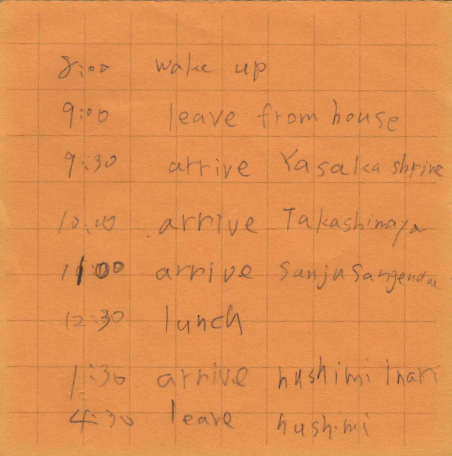 8:00 wake up
9:00 leave from house
9:30 arrive Yasaka shrine
10:00 arrive Takashimaya
11:00 arrive Sanjusangendou
12:30 lunch
1:30 arrive hushimi inari
4:30 leave hushimi